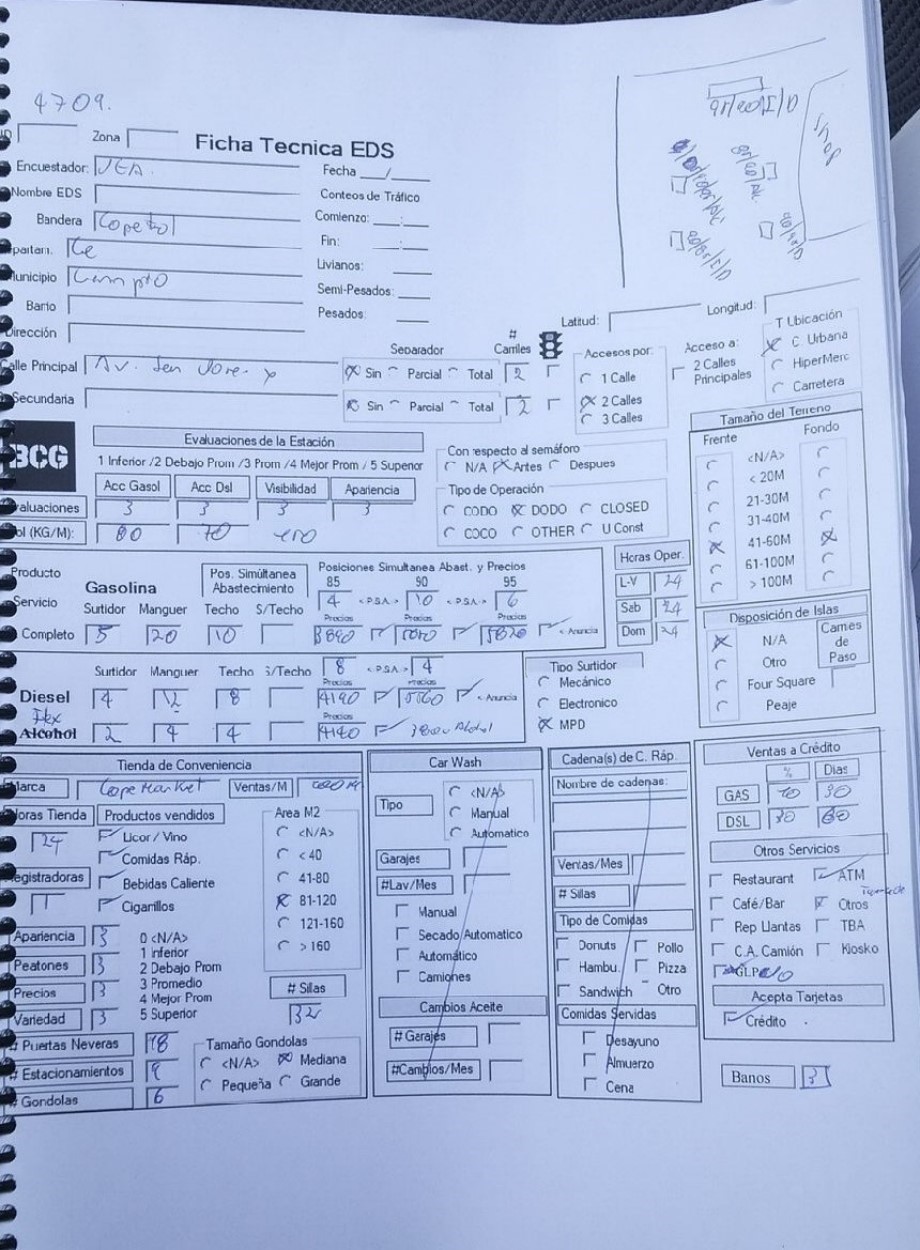 4709.
Zona
Ficha Tecnica EDS
Encuestador:
Fecha __/__
Nombre EDS
Conteos de Tráfico
Bandera Copetrol
Comienzo: __:__
Fin: __:__
Municipio
Livianos:
Semi-Pesados:
Barrio
Pesados:
Dirección
Shop
Latitud:
Longitud:
Calle Principal Av.
Separador
Sin Parcial Total
# Carriles
2
Secundaria
Sin Parcial Total
2
Accesos por:
1 Calle
2 Calles
3 Calles
Acceso a:
2 Calles Principales
T Ubicación
C. Urbana
HiperMerc
Carretera
BCG
Evaluaciones de la Estación
1 Inferior /2 Debajo Prom /3 Prom /4 Mejor Prom / 5 Superior
Acc Gasol Acc Dsl Visibilidad Apariencia
3 3 3 3
(KG/M): 80 70
Con respecto al semáforo
N/A Antes Despues
Tipo de Operación
CODO DODO CLOSED
COCO OTHER U Const
Tamaño del Terreno
Frente Fondo
<N/A>
< 20M
21-30M
31-40M
41-60M
61-100M
> 100M
Producto
Servicio
Completo
Gasolina
Pos. Simúltanea Abastecimiento
Posiciones Simultanea Abast. y Precios
85 90 95
4 <P.S.A> 10 <P.S.A> 6
Surtidor Manguer Techo S/Techo
Precios Precios Precios
5 20 10
< Anuncia
Horas Oper.
L-V 24
Sab 24
Dom 24
Disposición de Islas
N/A
Otro
Four Square
Peaje
Carries de Paso
Surtidor Manguer Techo S/Techo
8 <P.S.A> 4
Precios Precios
Diesel 4 12 8 4190 < Anuncia
Flex
Alcohol 2 4 4
Precios
4140
Tipo Surtidor
Mecánico
Electronico
MPD
Tienda de Conveniencia
Marca Copemarket Ventas/M
Horas Tienda 24
Productos vendidos
Licor / Vino
Comidas Ráp.
Bebidas Caliente
Cigarrillos
Registradoras 1
Area M2
<N/A>
< 40
41-80
81-120
121-160
> 160
Apariencia 3
Peatones 3
Precios 3
Variedad 3
0 <N/A>
1 Inferior
2 Debajo Prom
3 Promedio
4 Mejor Prom
5 Superior
# Sillas
32
# Puertas Neveras 18
# Estacionamientos
# Gondolas 6
Tamaño Gondolas
<N/A> Mediana
Pequeña Grande
Car Wash
Tipo
<N/A>
Manual
Automatico
Garajes
#Lav/Mes
Manual
Secado Automatico
Automático
Camiones
Cambios Aceite
# Garajes
#Cambios/Mes
Cadena(s) de C. Ráp.
Nombre de cadenas:
Ventas/Mes
# Sillas
Tipo de Comidas
Donuts Pollo
Hambu. Pizza
Sandwich Otro
Comidas Servidas
Desayuno
Almuerzo
Cena
Ventas a Crédito
% Dias
GAS 70 30
DSL
Otros Servicios
Restaurant ATM
Café/Bar Otros
Rep Llantas TBA
C.A. Camión Kiosko
GLP
Acepta Tarjetas
Crédito
Banos 3